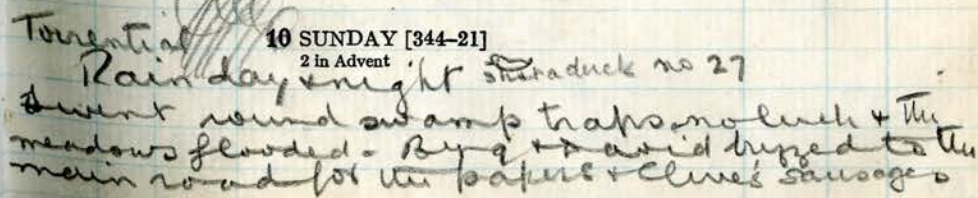 Torrential
10 SUNDAY [344–21]
2 in Advent
Rain day & night Shot a duck no 27
I went round swamp traps no luck & the
meadows flooded. Byng & David buzzed to the
main road for the papers & Clive's sausages